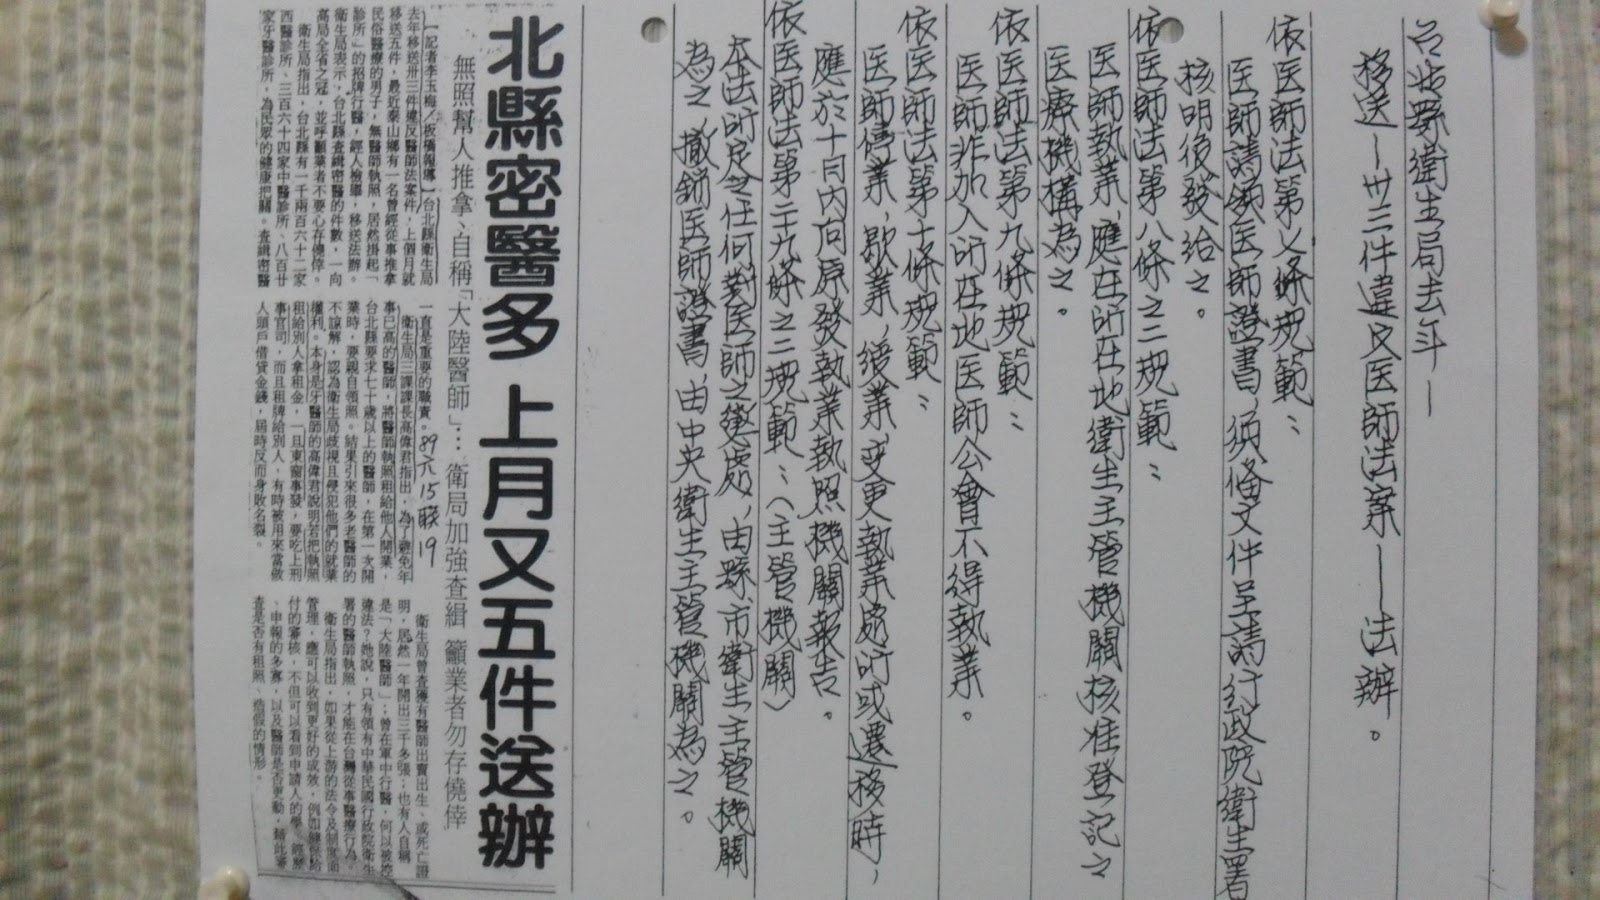 台北縣衛生局去年—
移送—卅三件違反医師法案——法辦。
依医師法第7條規範：
医師請領医師證書，須俻文件呈請行政院衛生署
核明後發給之。
依医師法第八條之二規範：
医師執業，應在所在地衛生主管機關核准登記之
医療機構為之。
依医師法第九條規範：
医師非加入所在地医師公會不得執業。
依医師法第十條規範：
医師停業，歇業，復業，变更執業處所或遷移時，
應於十日內向原發執業執照機關報告。
依医師法第二十九條之二規範：（主管機關）
本法所定之任何對医師之懲處，由縣、市衛生主管機關
為之，撤銷医師證書，由中央衛生主管機關為之。
北縣密醫多 上月又五件送辦
無照幫人推拿、自稱「大陸醫師」… 衛局加強查緝 籲業者勿存僥倖
【記者李玉梅／板橋報導】台北縣衛生局
去年移送卅三件違反醫師法案件，上個月就
移送五件，最近泰山鄉有一名曾經從事推拿
民俗醫療的男子，無醫師執照，居然掛起「
診所」的招牌行醫，經人檢舉，移送法辦。
衛生局表示，台北縣查緝密醫的件數，一向
高居全省之冠，並呼籲業者不要心存僥倖。
衛生局指出，台北縣有一千兩百六十二家
西醫診所、三百六十四家中醫診所、八百廿
家牙醫診所，為民眾的健康把關。查緝密醫
一直是重要的職責。
89六15聯19
衛生局三課課長高偉君指出，為了避免年
事已高的醫師，將醫師執照租給他人開業，
台北縣要求七十歲以上的醫師，在第一次開
業時，要親自領照。結果引來很多老醫師的
不諒解，認為衛生局歧視且侵犯他們的就業
權利。本身是牙醫師的高偉君說明若把執照
租給別人拿租金，一旦東窗事發，要吃上刑
事官司，而且租牌給別人，有時被用來當做
人頭戶借貸金錢，屆時反而身敗名裂。
衛生局曾查獲有醫師出賣出生、或死亡證
明，居然一年開出三千多張；也有人自稱
是「大陸醫師」；曾在軍中行醫，何以被控
違法？她說，只有領有中華民國行政院衛生
署的醫師執照，才能在台灣從事醫療行為。
衛生局指出，如果從上游的法令及制度面
管理，應可以收到更好的成效，例如健保給
付的審核，不但可以看到申請人的學、經歷
、申報的多寡，以及醫師是否更動，藉此審
查是否有租照、造假的情形。